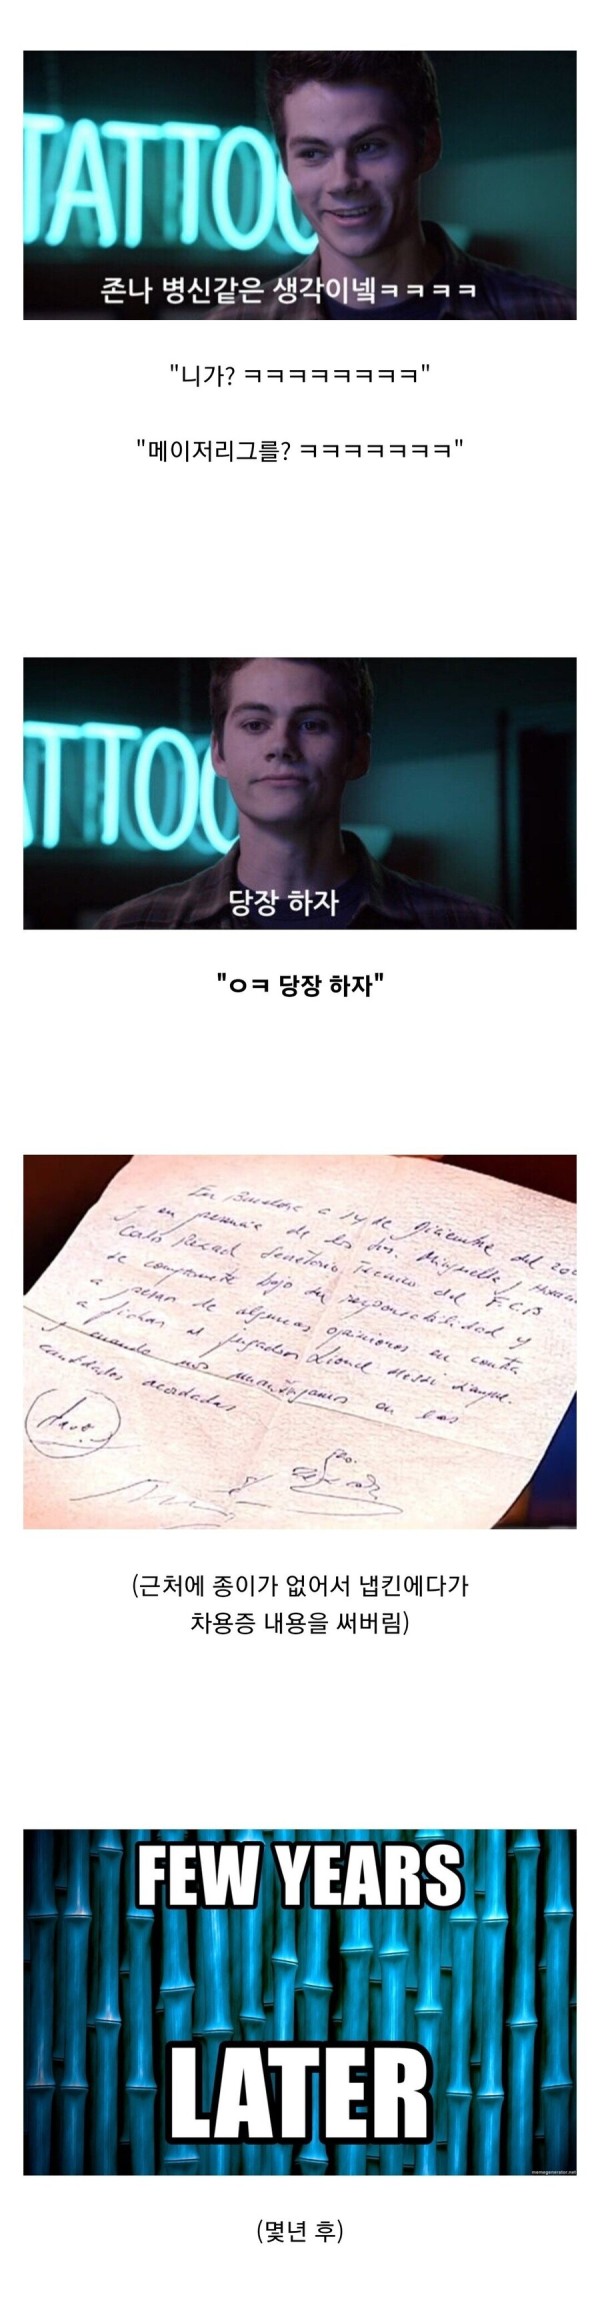 TATTOO
존나 병신같은 생각이넼ㅋㅋㅋㅋ
"니가? ㅋㅋㅋㅋㅋㅋㅋㅋ"
"메이저리그를? ㅋㅋㅋㅋㅋㅋㅋ"
TTOO
당장 하자
"ㅇㅋ 당장 하자"
En Barcelona a 14 de diciembre del
en presencia de los Srs. Minguella y
Carlos Rexach Secretario Técnico del F.C.B
se compromete bajo su responsabilidad y
a pesar de algunas opiniones en contra
a fichar al jugador Lionel Messi
y cuando nos mantengamos en las
cantidades acordadas
(근처에 종이가 없어서 냅킨에다가
차용증 내용을 써버림)
FEW YEARS
LATER
memegenerator.net
(몇년 후)